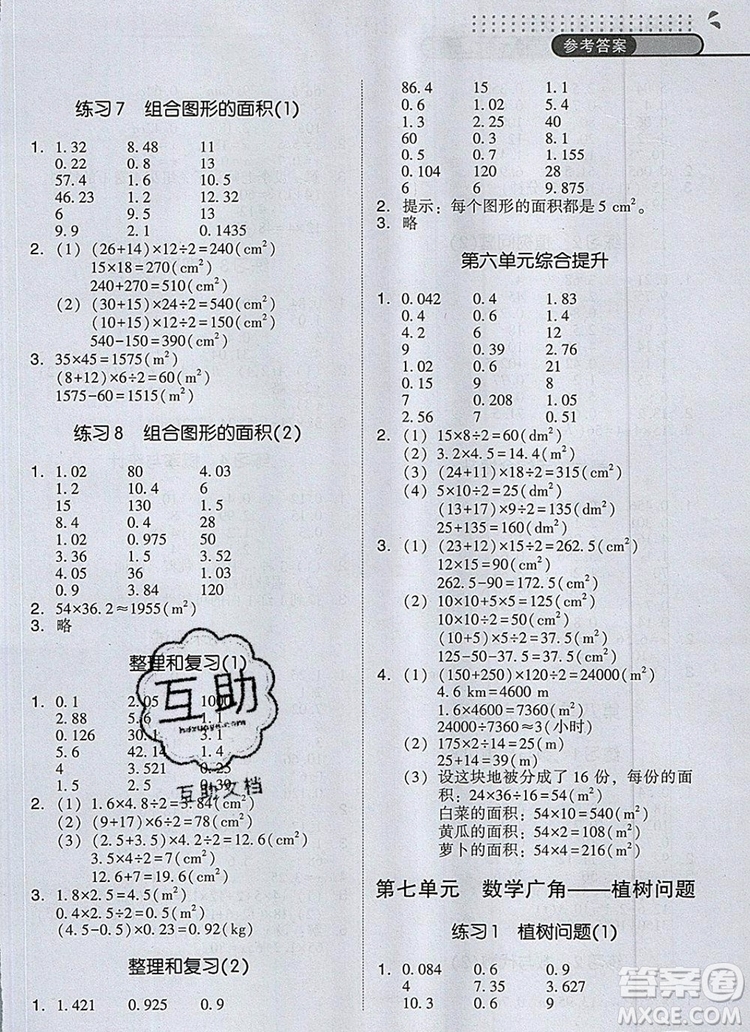 参考答案
练习7 组合图形的面积(1)
1. 1.32 8.48 11
0.22 0.8 13
57.4 1.6 10.5
46.23 1.2 12.32
6 9.5 13
9.9 2.1 0.1435
2. (1) (26+14)×12÷2=240(cm²)
15×18=270(cm²)
240+270=510(cm²)
(2) (30+15)×24÷2=540(cm²)
(10+15)×12÷2=150(cm²)
540-150=390(cm²)
3. 35×45=1575(m²)
(8+12)×6÷2=60(m²)
1575-60=1515(m²)
练习8 组合图形的面积(2)
1. 1.02 80 4.03
1.2 10.4 6
15 130 1.5
8.4 0.4 28
1.02 0.975 50
3.36 1.5 3.52
4.05 36 1.03
0.9 3.84 120
2. 54×36.2≈1955(m²)
3. 略
整理和复习(1)
1. 0.1 2.05 1000
2.88 5.6 1.1
0.126 30.1
5.6 42.14
4 3.22 0.25
15 2.5 0.39
2. (1) 1.6×4.8÷2=3.84(cm²)
(2) (9+17)×6÷2=78(cm²)
(3) (2.5+3.5)×4.2÷2=12.6(cm²)
3.5×4÷2=7(cm²)
12.6+7=19.6(cm²)
3. 1.8×2.5=4.5(m²)
0.4×2.5÷2=0.5(m²)
(4.5-0.5)×0.23=0.92(kg)
整理和复习(2)
1. 1.421 0.925 0.9
86.4 15 1.1
0.6 1.02 5.4
1.3 2.25 40
60 0.3 8.1
0.6 0.7 1.155
0.104 120 28
6 6 9.875
2. 提示：每个图形的面积都是5 cm²。
3. 略
第六单元综合提升
1. 0.042 0.4 1.83
0.4 0.6 1.4
4.2 6 11
9 0.39 2.76
1.02 0.6 21
0.15 9 8
7 0.208 1.05
2.56 7 0.51
2. (1) 15×8÷2=60(dm²)
(2) 3.2×4=12.8(m²)
(3) (24+11)×18÷2=315(m²)
(4) 5×10÷2=25(dm²)
(13+17)×9÷2=135(dm²)
25+135=160(dm²)
3. (1) (23+12)×15÷2=262.5(cm²)
12×15÷2=90(cm²)
262.5-90=172.5(cm²)
(2) 10×10+5×5=125(cm²)
10×10÷2=50(cm²)
(10+5)×5÷2=37.5(cm²)
125-50-37.5=37.5(cm²)
4. (1) (150+250)×120÷2=24000(m²)
4.6 km=4600 m
1.6×4600=7360(m²)
24000÷7360≈3(小时)
(2) 175×2÷14=25(m)
25-14=11(m)
(3) 设这块地被分成了16份，每份的面
积：24×36÷16=54(m²)
白菜的面积：54×10=540(m²)
黄瓜的面积：54×2=108(m²)
萝卜的面积：54×4=216(m²)
第七单元 数学广角——植树问题
练习1 植树问题(1)
1. 0.084 0.6 0.9
4 7.35 0.08
10.3 0.6
互助
hdzuoye.com
互助文档
答案圈
MXQE.COM